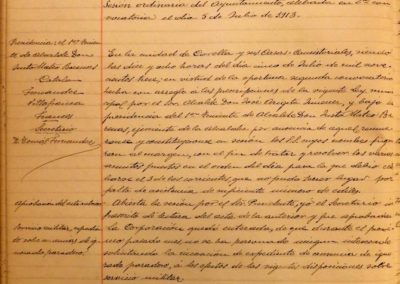 Sesion ordinaria del Ayuntamiento, celebrada en 2ª con-
vocatoria el dia 5 de Julio de 1913.
Presidencia: el 1er Tenien-
te de Alcalde Don
Justo Mateo Barcenas
Fernandez
Villafranca
Frances
Secretario
D. Gomez Fernandez
En la ciudad de Corella y sus Casas Consistoriales, siendo
las diez y ocho horas del dia cinco de Julio de mil nove-
cientos trece; en virtud de la oportuna segunda convocatoria
hecha con arreglo á las prescripciones de la vigente Ley mu-
nicipal por el Sr. Alcalde Don José Arigita Jimenez, y bajo la
presidencia del 1er Teniente de Alcalde Don Justo Mateo Bar-
cenas, ejerciente de la alcaldia por ausencia de aquel, reunie-
ronse y constituyeronse en sesion, los S.S. cuyos nombres figu-
ran al margen, con el fin de tratar y resolver los diver-
sos asuntos puestos en el orden del dia para la que debió cele-
brarse el 3 de los corrientes, que no pudo tener lugar por
falta de asistencia de suficiente numero de ediles.
Aprobacion del acta anterior
Abierta la sesion por el Sr. Presidente, yo el Secretario in-
frascrito dí lectura del acta de la anterior y fue aprobada.
Servicio militar, expedien-
tes sobre ausencia de ig-
norado paradero.
La Corporacion quedó enterada, de que durante el proxi-
mo pasado mes no se ha personado ningun interesado
solicitando la incoacion de expediente de ausencia de igno-
rado paradero, á los efectos de las vigentes disposiciones sobre
servicio militar.